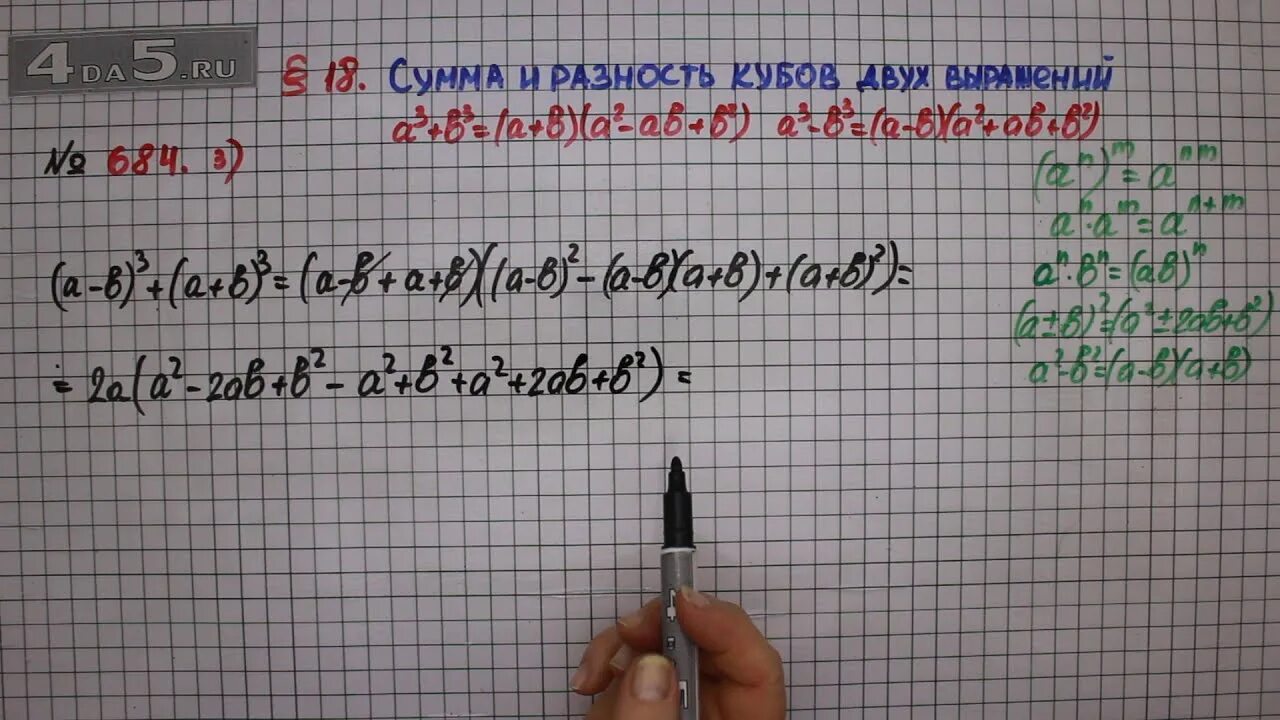 4DA5.RU
§ 18. Сумма и разность кубов двух выражений
a³+b³=(a+b)(a²-ab+b²) a³-b³=(a-b)(a²+ab+b²)
№ 684. 3)
(aⁿ)ᵐ=aⁿᵐ
aⁿ·aᵐ=aⁿ⁺ᵐ
aⁿ·bⁿ=(ab)ⁿ
(a±b)²=(a²±2ab+b²)
a²-b²=(a-b)(a+b)
(a-b)³+(a+b)³=(a-b+a+b)((a-b)²-(a-b)(a+b)+(a+b)²)=
=2a(a²-2ab+b²-a²+b²+a²+2ab+b²)=